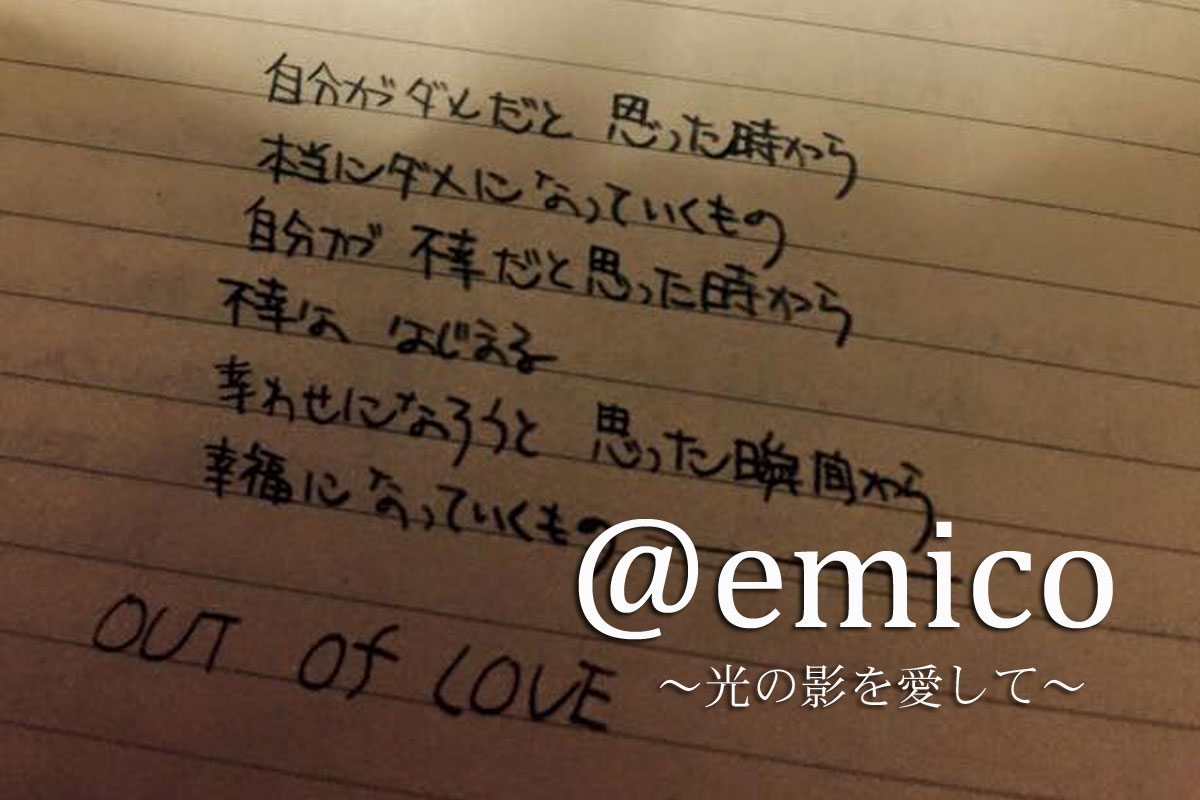 自分がダメだと 思った時から
本当にダメになっていくもの
自分が 不幸だと思った時から
不幸は はじまる
幸わせになろうと 思った瞬間から
幸福になっていくもの
OUT Of LOVE
@emico
～光の影を愛して～